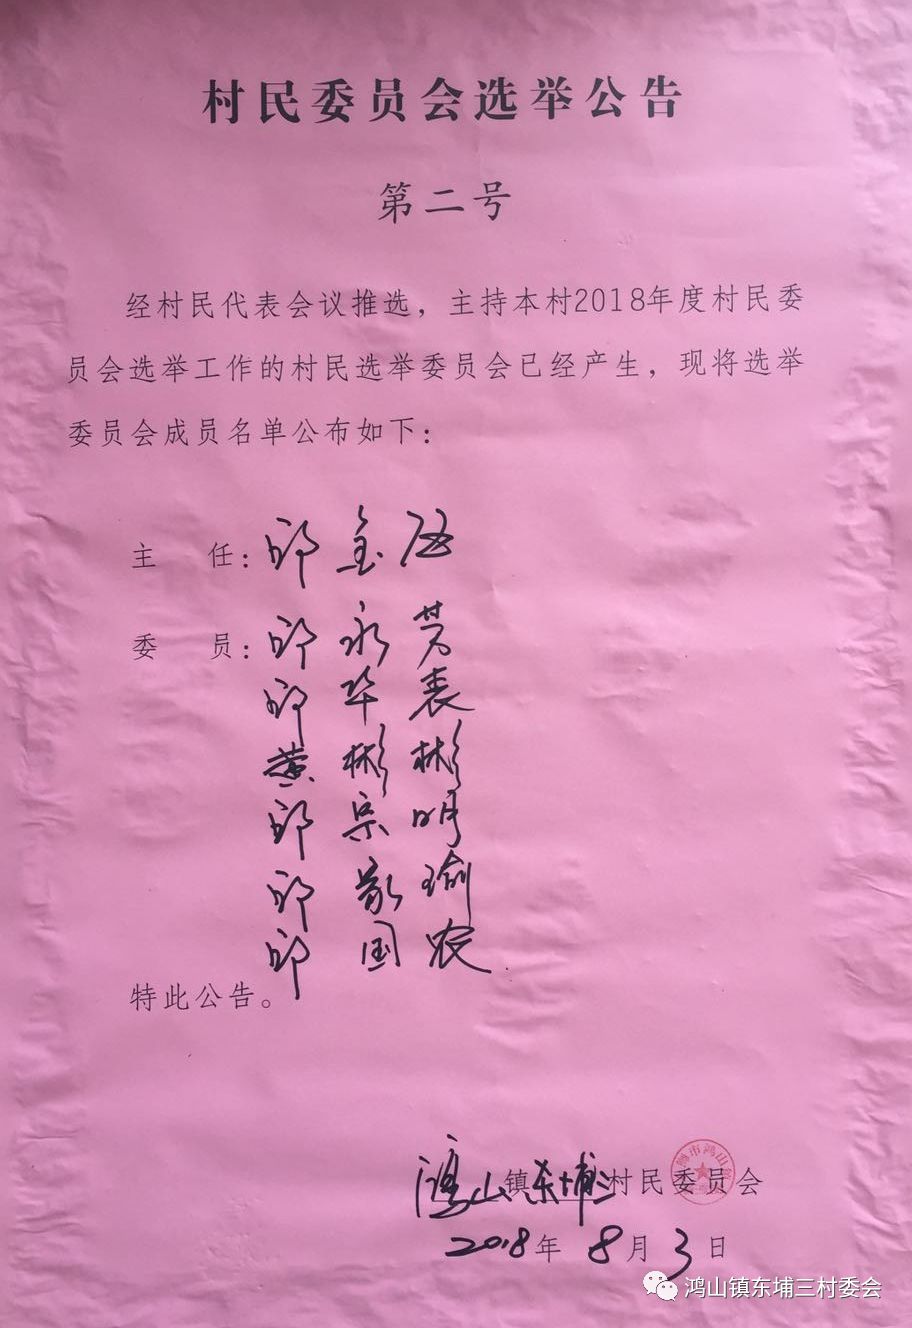 村民委员会选举公告
第二号
经村民代表会议推选，主持本村2018年度村民委
员会选举工作的村民选举委员会已经产生，现将选举
委员会成员名单公布如下：
主　任：邱金
委　员：邱永芳
邱华表
黄彬彬
邱宗明
邱敬瑜
邱国农
特此公告。
鸿山镇东埔三村民委员会
2018年8月3日
鸿山镇东埔三村委会